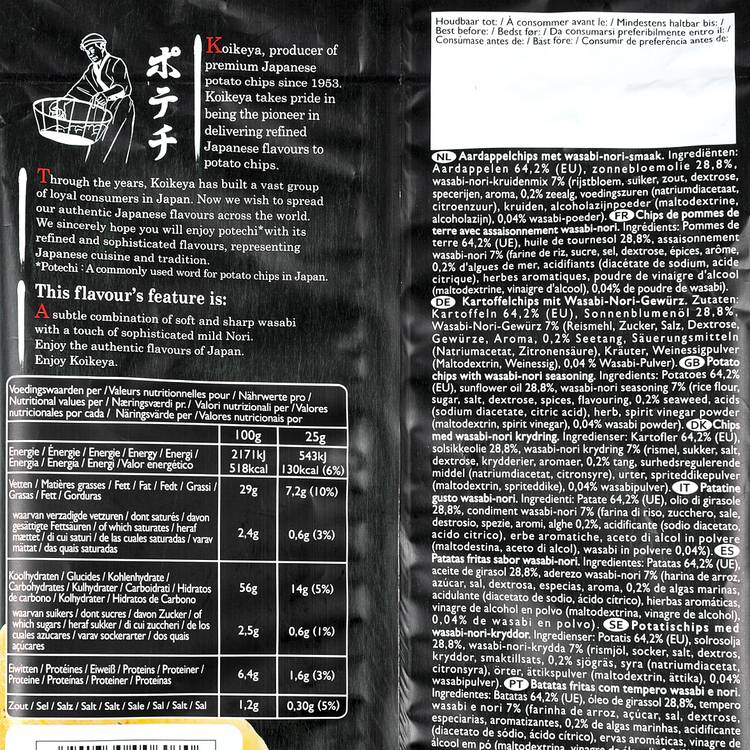 ポテチ
Koikeya, producer of
premium Japanese
potato chips since 1953.
Koikeya takes pride in
being the pioneer in
delivering refined
Japanese flavours to
potato chips.
Through the years, Koikeya has built a vast group
of loyal consumers in Japan. Now we wish to spread
our authentic Japanese flavours across the world.
We sincerely hope you will enjoy potechi*with its
refined and sophisticated flavours, representing
Japanese cuisine and tradition.
*Potechi : A commonly used word for potato chips in Japan.
This flavour's feature is:
A subtle combination of soft and sharp wasabi
with a touch of sophisticated mild Nori.
Enjoy the authentic flavours of Japan.
Enjoy Koikeya.
Voedingswaarden per /Valeurs nutritionnelles pour / Nährwerte pro /
Nutritional values per / Næringsværdi pr. / Valori nutrizionali per /Valores
nutricionales por cada / Näringsvärde per / Valores nutricionais por
100g 25g
Energie / Énergie / Energie / Energy / Energi / 2171kJ 543kJ
Energia / Energía / Energi /Valor energético 518kcal 130kcal (6%)
Vetten / Matières grasses / Fett / Fat / Fedt / Grassi / 29g 7,2g (10%)
Grasas / Fett / Gorduras
waarvan verzadigde vetzuren / dont saturés / davon
gesättigte Fettsäuren / of which saturates / heraf 2,4g 0,6g (3%)
mættet / di cui saturi / de las cuales saturadas / varav
mättat / das quais saturadas
Koolhydraten / Glucides / Kohlenhydrate /
Carbohydrates / Kulhydrater / Carboidrati / Hidratos 56g 14g (5%)
de carbono / Kolhydrater / Hidratos de Carbono
waarvan suikers / dont sucres / davon Zucker / of
which sugars / heraf sukker / di cui zuccheri / de los 2,5g 0,6g (1%)
cuales azúcares / varav sockerarter / dos quais
açúcares
Eiwitten / Protéines / Eiweiß / Proteins / Proteiner / 6,4g 1,6g (3%)
Proteine / Proteínas / Proteiner / Proteínas
Zout / Sel / Salz / Salt / Salt / Sale / Sal / Salt / Sal 1,2g 0,30g (5%)
Houdbaar tot: / À consommer avant le: / Mindestens haltbar bis: /
Best before: / Bedst før: / Da consumarsi preferibilmente entro il: /
Consúmase antes de: / Bäst före: / Consumir de preferência antes de:
NL Aardappelchips met wasabi-nori-smaak. Ingrediënten:
Aardappelen 64,2% (EU), zonnebloemolie 28,8%,
wasabi-nori-kruidenmix 7% (rijstbloem, suiker, zout, dextrose,
specerijen, aroma, 0,2% zeealg, voedingszuren (natriumdiacetaat,
citroenzuur), kruiden, alcoholazijnpoeder (maltodextrine,
alcoholazijn), 0,04% wasabi-poeder). FR Chips de pommes de
terre avec assaisonnement wasabi-nori. Ingrédients: Pommes de
terre 64,2% (UE), huile de tournesol 28,8%, assaisonnement
wasabi-nori 7% (farine de riz, sucre, sel, dextrose, épices, arôme,
0,2% d'algues de mer, acidifiants (diacétate de sodium, acide
citrique), herbes aromatiques, poudre de vinaigre d'alcool
(maltodextrine, vinaigre d'alcool), 0,04% de poudre de wasabi).
DE Kartoffelchips mit Wasabi-Nori-Gewürz. Zutaten:
Kartoffeln 64,2% (EU), Sonnenblumenöl 28,8%,
Wasabi-Nori-Gewürz 7% (Reismehl, Zucker, Salz, Dextrose,
Gewürze, Aroma, 0,2% Seetang, Säuerungsmitteln
(Natriumacetat, Zitronensäure), Kräuter, Weinessigpulver
(Maltodextrin, Weinessig), 0,04 % Wasabi-Pulver). GB Potato
chips with wasabi-nori seasoning. Ingredients: Potatoes 64,2%
(EU), sunflower oil 28,8%, wasabi-nori seasoning 7% (rice flour,
sugar, salt, dextrose, spices, flavouring, 0,2% seaweed, acids
(sodium diacetate, citric acid), herb, spirit vinegar powder
(maltodextrin, spirit vinegar), 0,04% wasabi powder). DK Chips
med wasabi-nori krydring. Ingredienser: Kartofler 64,2% (EU),
solsikkeolie 28,8%, wasabi-nori krydring 7% (rismel, sukker, salt,
dextrose, krydderier, aromaer, 0,2% tang, surhedsregulerende
middel (natriumdiacetat, citronsyre), urter, spriteddikepulver
(maltodextrin, spriteddike), 0,04% wasabipulver). IT Patatine
gusto wasabi-nori. Ingredienti: Patate 64,2% (UE), olio di girasole
28,8%, condiment wasabi-nori 7% (farina di riso, zucchero, sale,
destrosio, spezie, aromi, alghe 0,2%, acidificante (sodio diacetato,
acido citrico), erbe aromatiche, aceto di alcol in polvere
(maltodestina, aceto di alcol), wasabi in polvere 0,04%). ES
Patatas fritas sabor wasabi-nori. Ingredientes: Patatas 64,2% (UE),
aceite de girasol 28,8%, aderezo wasabi-nori 7% (harina de arroz,
azúcar, sal, dextrosa, especias, aroma, 0,2% de algas marinas,
acidulante (diacetato de sodio, ácido cítrico), hierbas aromáticas,
vinagre de alcohol en polvo (maltodextrina, vinagre de alcohol),
0,04% de wasabi en polvo). SE Potatischips med
wasabi-nori-kryddor. Ingredienser: Potatis 64,2% (EU), solrosolja
28,8%, wasabi-nori-krydda 7% (rismjöl, socker, salt, dextros,
kryddor, smaktillsats, 0,2% sjögräs, syra (natriumdiacetat,
citronsyra), örter, ättikspulver (maltodextrin, ättika), 0,04%
wasabipulver). PT Batatas fritas com tempero wasabi e nori.
Ingredientes: Batatas 64,2% (UE), óleo de girassol 28,8%, tempero
wasabi e nori 7% (farinha de arroz, açúcar, sal, dextrose,
especiarias, aromatizantes, 0,2% de algas marinhas, acidificante
(diacetato de sódio, ácido cítrico), ervas aromáticas, vinagre de
álcool em pó (maltodextrina, vinagre de